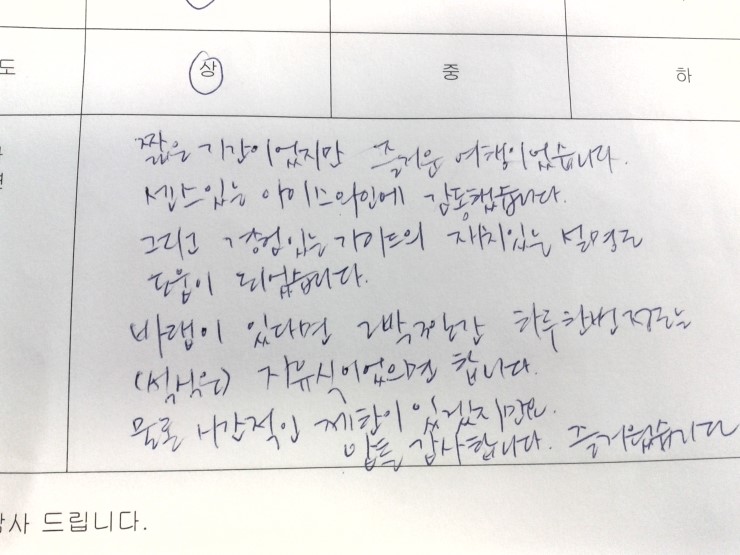 도 상 중 하
짧은 기간이었지만 즐거운 여행이었습니다.
센스있는 아이스와인에 감동했습니다.
그리고 경험있는 가이드의 재치있는 설명도
도움이 되었습니다.
바램이 있다면 2박 하루한번정도는
(석식은) 자유식이었으면 합니다.
물론 시간적인 제한이 있겠지만요.
암튼 감사합니다. 즐거웠습니다
사 드립니다.